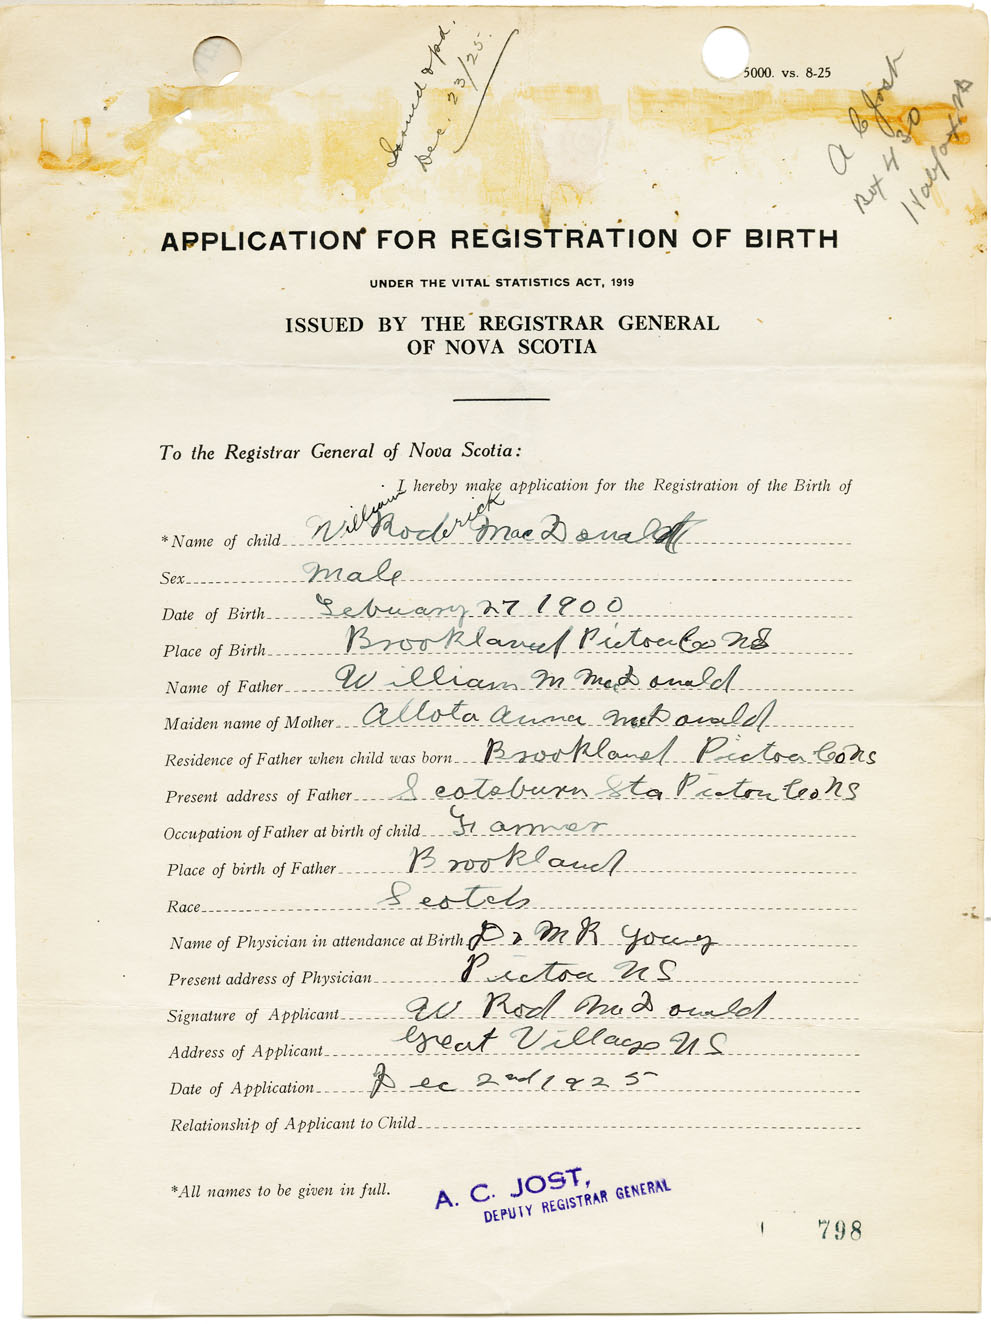 Issued & pd.
Dec. 23/25.
5000. vs. 8-25
A C Jost
Box 430
Halifax NS
APPLICATION FOR REGISTRATION OF BIRTH
UNDER THE VITAL STATISTICS ACT, 1919
ISSUED BY THE REGISTRAR GENERAL
OF NOVA SCOTIA
To the Registrar General of Nova Scotia:
I hereby make application for the Registration of the Birth of
*Name of child William Roderick MacDonald
Sex Male
Date of Birth Febuary 27 1900
Place of Birth Brookland Pictou Co NS
Name of Father William M McDonald
Maiden name of Mother Allota Anna McDonald
Residence of Father when child was born Brookland Pictou Co NS
Present address of Father Scotsburn Sta Pictou Co NS
Occupation of Father at birth of child Farmer
Place of birth of Father Brookland
Race Scotch
Name of Physician in attendance at Birth Dr M R Young
Present address of Physician Pictou NS
Signature of Applicant W Rod McDonald
Address of Applicant Great Village NS
Date of Application Dec 2nd 1925
Relationship of Applicant to Child
*All names to be given in full.
A. C. JOST,
DEPUTY REGISTRAR GENERAL
798